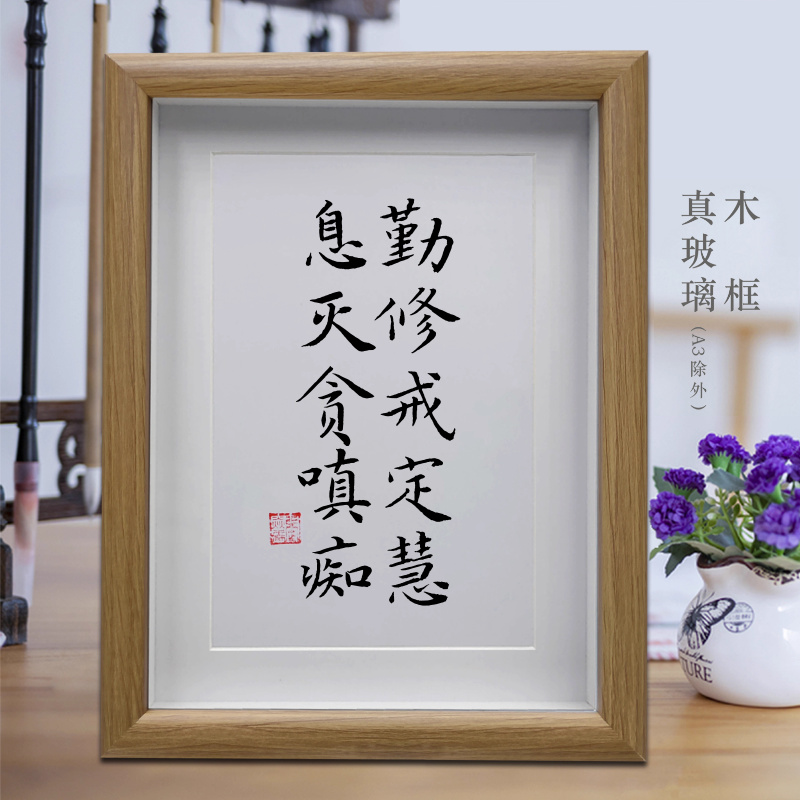 勤修戒定慧
息灭贪嗔痴
木框
真玻璃(A3除外)
TURE